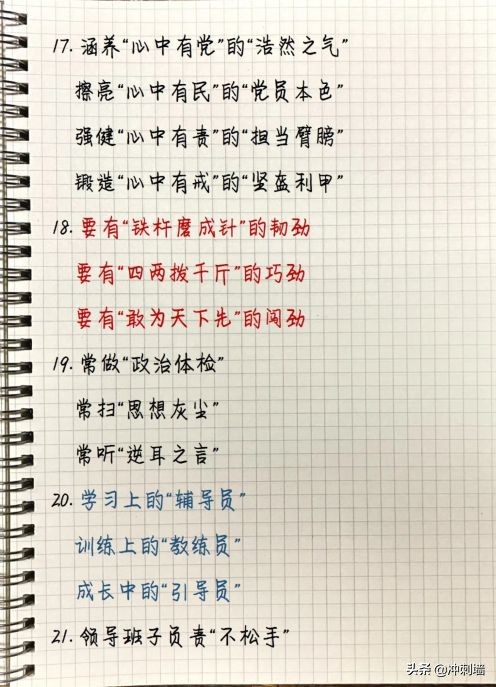 17. 涵养“心中有党”的“浩然之气”
擦亮“心中有民”的“党员本色”
强健“心中有责”的“担当臂膀”
锻造“心中有戒”的“坚盔利甲”
18. 要有“铁杵磨成针”的韧劲
要有“四两拨千斤”的巧劲
要有“敢为天下先”的闯劲
19. 常做“政治体检”
常扫“思想灰尘”
常听“逆耳之言”
20. 学习上的“辅导员”
训练上的“教练员”
成长中的“引导员”
21. 领导班子负责“不松手”
头条 @冲刺墙